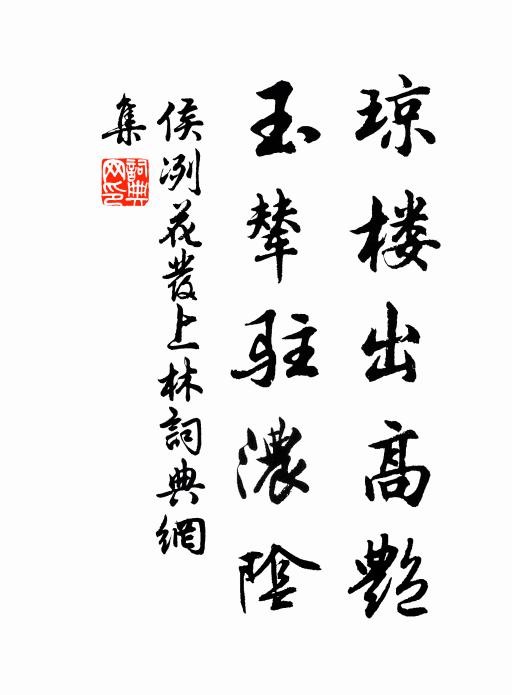 琼楼出高艳
玉辇驻浓阴
侯冽花發上林詞典網
集
詞典網印